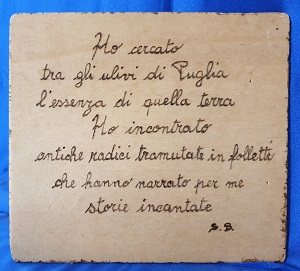 Ho cercato
tra gli ulivi di Puglia
l'essenza di quella terra
Ho incontrato
antiche radici tramutate in folletti
che hanno narrato per me
storie incantate
S. D.